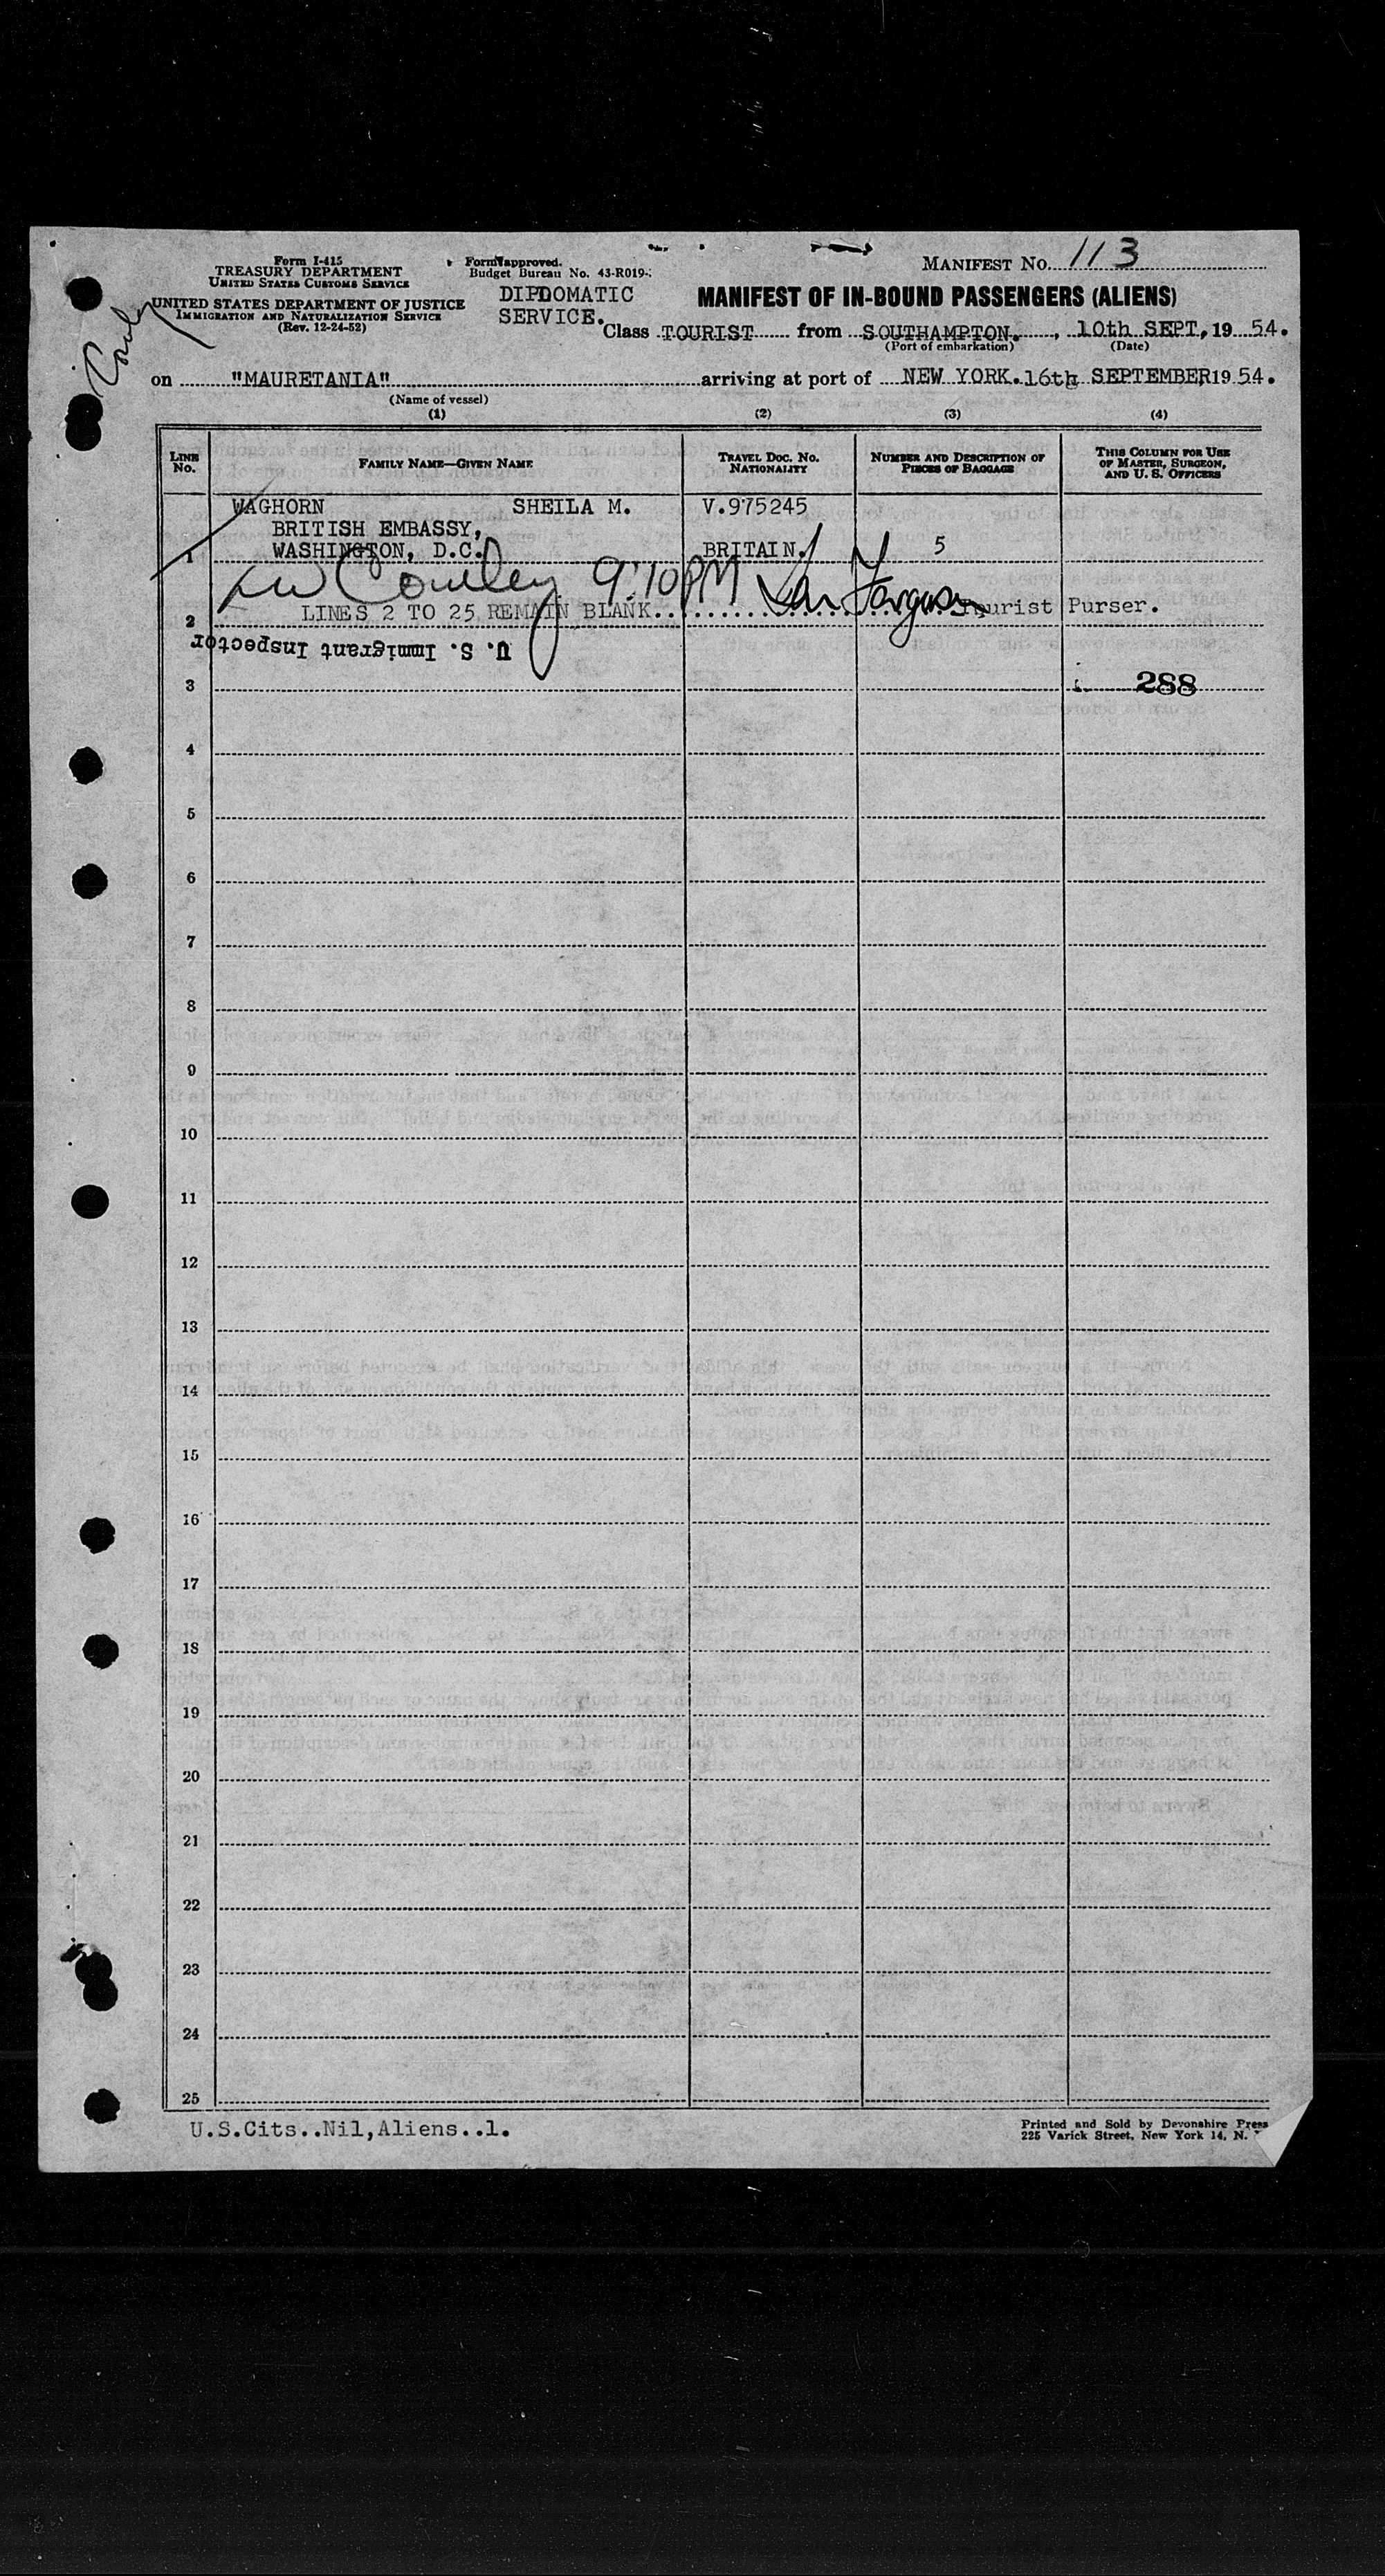 Form I-415
TREASURY DEPARTMENT
UNITED STATES CUSTOMS SERVICE
UNITED STATES DEPARTMENT OF JUSTICE
IMMIGRATION AND NATURALIZATION SERVICE
(Rev. 12-24-52)
Form approved.
Budget Bureau No. 43-R019-
DIPLOMATIC
SERVICE.
MANIFEST NO. 113
MANIFEST OF IN-BOUND PASSENGERS (ALIENS)
Class TOURIST from SOUTHAMPTON. , 10th SEPT, 19 54.
(Port of embarkation) (Date)
Cowley
on "MAURETANIA" arriving at port of NEW YORK. 16th SEPTEMBER 19 54.
(Name of vessel)
(1) (2) (3) (4)
LINE No. FAMILY NAME—GIVEN NAME TRAVEL DOC. NO. NATIONALITY NUMBER AND DESCRIPTION OF PIECES OF BAGGAGE THIS COLUMN FOR USE OF MASTER, SURGEON, AND U. S. OFFICERS
WAGHORN SHEILA M. V.975245
BRITISH EMBASSY,
1 WASHINGTON, D.C. BRITAIN. 5
Cowley 9:10PM
2 LINES 2 TO 25 REMAIN BLANK.................. Tourist Purser.
U. S. Immigrant Inspector
3 288
4
5
6
7
8
9
10
11
12
13
14
15
16
17
18
19
20
21
22
23
24
25
U.S.Cits..Nil,Aliens..1.
Printed and Sold by Devonshire Press
225 Varick Street, New York 14, N.